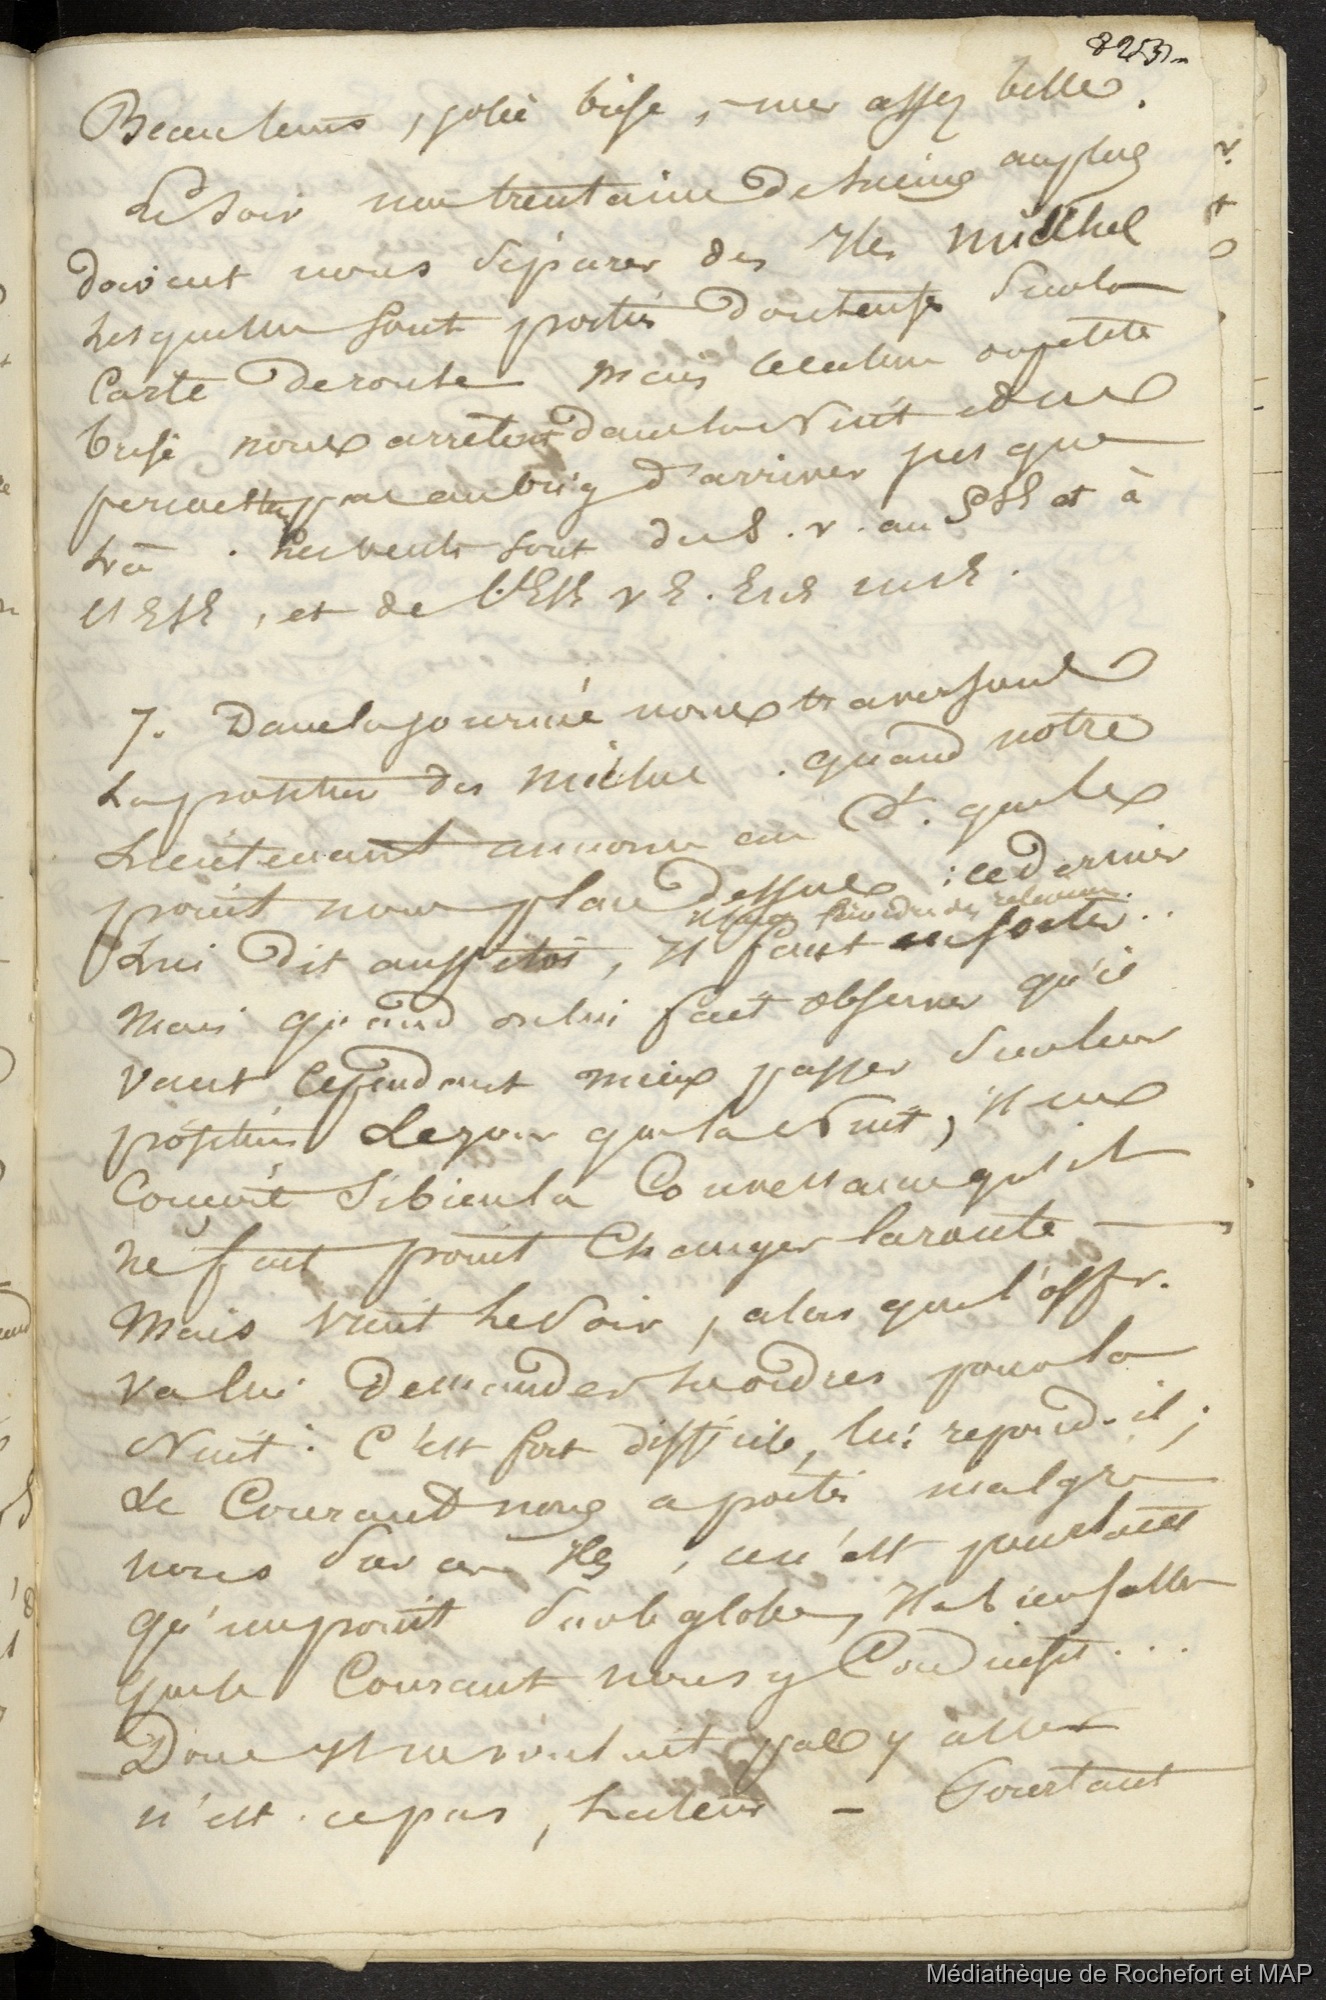 Beau tems, jolie brise, mer assez belle.
Le soir une trentaine de lieues au plus
doivent nous séparer des Iles Michel
lesquelles sont portées douteuses sur la
Carte de route mais le calme ou petite
brise nous arrêtent dans la Nuit et ne
permettent pas au brig d'arriver jusque
là. Les vents sont du S. v. au SSE et à
l'ESE, et de l'ESE v E. ENE
7. Dans la journée nous traversons
la position des Michel. quand notre
Lieutenant annonce au Ct. que le
point nous place dessus : ce dernier
lui dit aussitôt, Il faut en sortir..
Mais quand on lui fait observer qu'il
vaut cependant mieux passer sur leur
position Le jour que la Nuit, Il ne
si bien la qu'il
ne fait point Changer la route
Mais vient le Soir, alors que l'offr.
va lui demander les ordres pour la
Nuit : C'est fort difficile, lui repond-il;
Le Courant nous a portés malgré
nous sur ces Iles, ce n'est pourtant
qu'un point sur le globe, Il a bien fallu
que le Courant nous y Conduisit...
Donc Il ne voulait pas y aller
n'est-ce pas, lecteur - Pourtant
Médiathèque de Rochefort et MAP